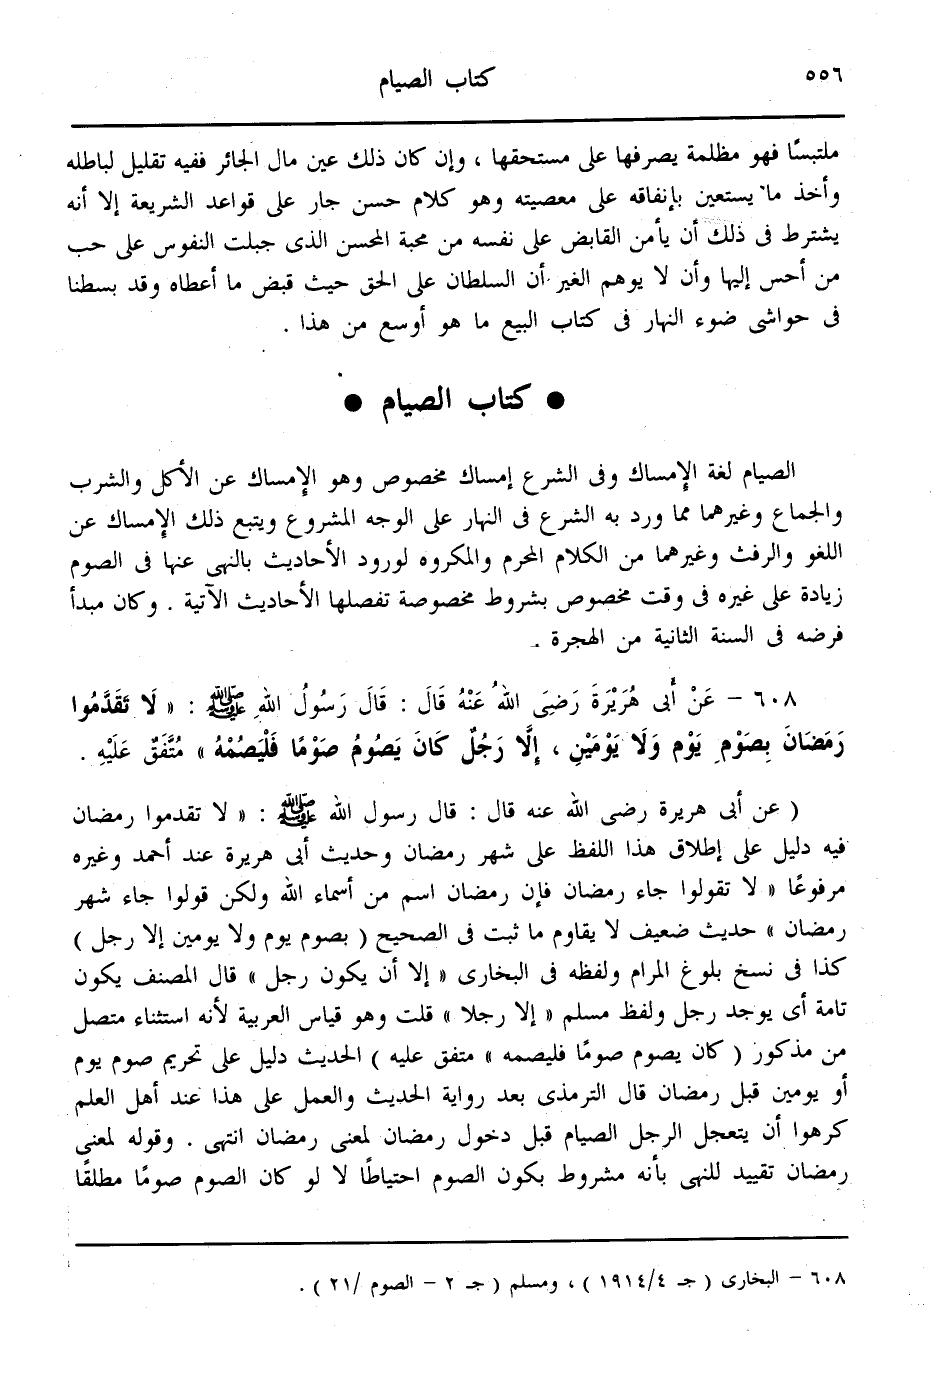 ٥٥٦
كتاب الصيام
ملتبسًا فهو مظلمة يصرفها على مستحقها ، وإن كان ذلك عين مال الجائر ففيه تقليل لباطله
وأخذ ما يستعين بإنفاقه على معصيته وهو كلام حسن جار على قواعد الشريعة إلا أنه
يشترط فى ذلك أن يأمن القابض على نفسه من محبة المحسن الذى جبلت النفوس على حب
من أحس إليها وأن لا يوهم الغير أن السلطان على الحق حيث قبض ما أعطاه وقد بسطنا
فى حواشى ضوء النهار فى كتاب البيع ما هو أوسع من هذا .
● كتاب الصيام ●
الصيام لغة الإمساك وفى الشرع إمساك مخصوص وهو الإمساك عن الأكل والشرب
والجماع وغيرهما مما ورد به الشرع فى النهار على الوجه المشروع ويتبع ذلك الإمساك عن
اللغو والرفث وغيرهما من الكلام المحرم والمكروه لورود الأحاديث بالنهى عنها فى الصوم
زيادة على غيره فى وقت مخصوص بشروط مخصوصة تفصلها الأحاديث الآتية . وكان مبدأ
فرضه فى السنة الثانية من الهجرة .
٦٠٨ – عَنْ أَبى هُرَيْرَةَ رَضِىَ اللهُ عَنْهُ قَالَ : قَالَ رَسُولُ اللهِ ﷺ : « لَا تَقَدَّمُوا
رَمَضَانَ بِصَوْمِ يَوْم وَلَا يَوْمَيْنِ ، إِلَّا رَجُلٌ كَانَ يَصُومُ صَوْمًا فَلْيَصُمْهُ » مُتَّفَقٌ عَلَيْهِ .
( عن أبى هريرة رضى الله عنه قال : قال رسول الله ﷺ : « لا تقدموا رمضان
فيه دليل على إطلاق هذا اللفظ على شهر رمضان وحديث أبى هريرة عند أحمد وغيره
مرفوعًا « لا تقولوا جاء رمضان فإن رمضان اسم من أسماء الله ولكن قولوا جاء شهر
رمضان » حديث ضعيف لا يقاوم ما ثبت فى الصحيح ( بصوم يوم ولا يومين إلا رجل )
كذا فى نسخ بلوغ المرام ولفظه فى البخارى « إلا أن يكون رجل » قال المصنف يكون
تامة أى يوجد رجل ولفظ مسلم « إلا رجلا » قلت وهو قياس العربية لأنه استثناء متصل
من مذكور ( كان يصوم صومًا فليصمه » متفق عليه ) الحديث دليل على تحريم صوم يوم
أو يومين قبل رمضان قال الترمذى بعد رواية الحديث والعمل على هذا عند أهل العلم
كرهوا أن يتعجل الرجل الصيام قبل دخول رمضان لمعنى رمضان انتهى . وقوله لمعنى
رمضان تقييد للنهى بأنه مشروط بكون الصوم احتياطًا لا لو كان الصوم صومًا مطلقًا
٦٠٨ – البخارى ( جـ ٤/ ١٩١٤ ) ، ومسلم ( جـ ٢ – الصوم /٢١ ) .